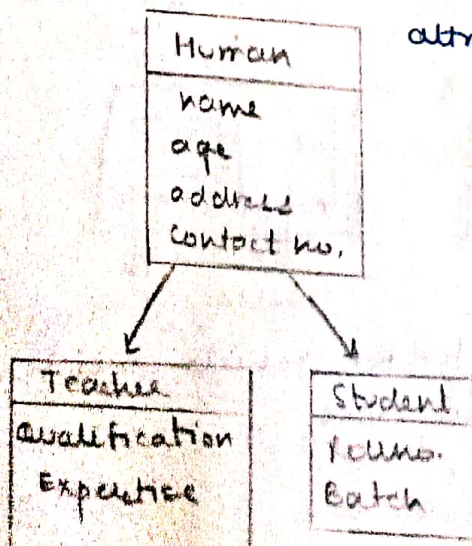 Human
name
age
address
contact no.
Teacher
Qualification
Expertise
Student
rollno.
Batch